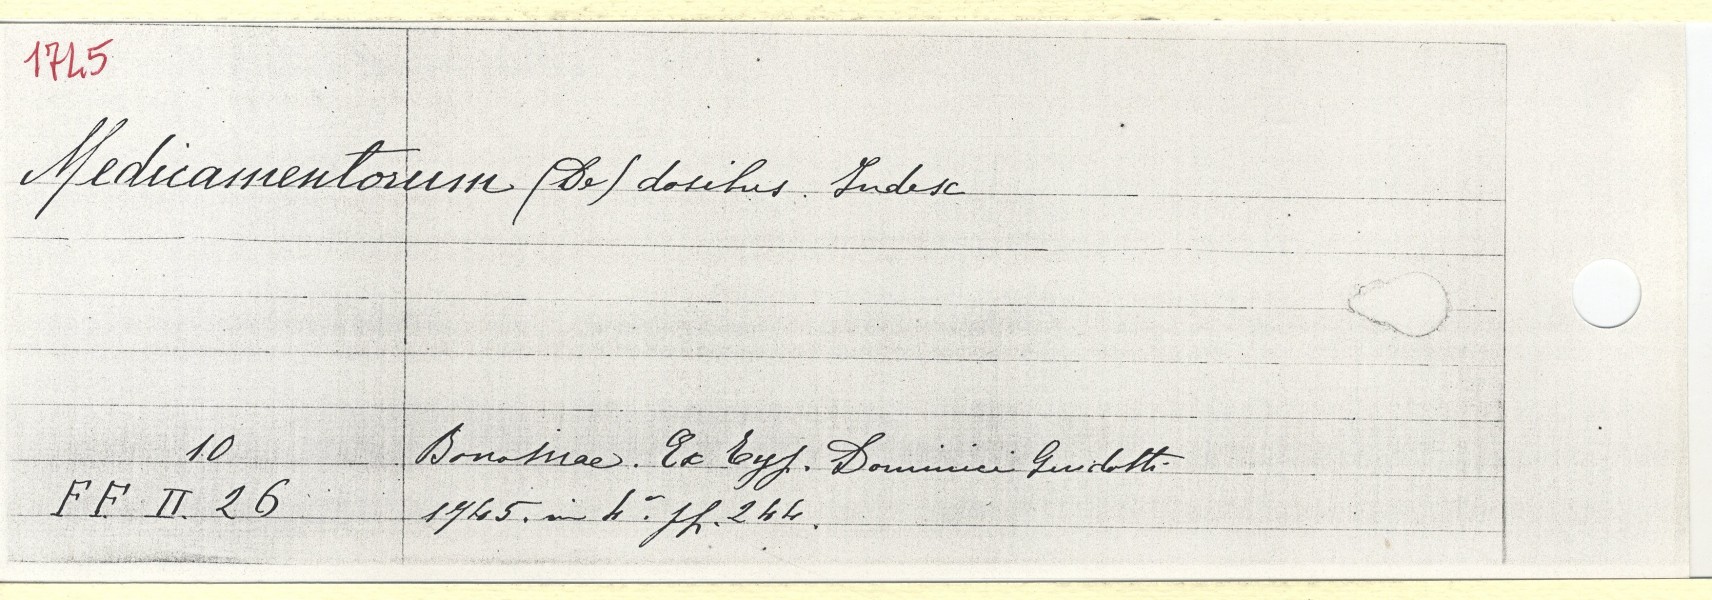 1745
Medicamentorum (De) dosibus. Index
10
Bononiae. Ex Typ. Dominici Guidotti
FF. II. 26
1745. in 4° pp. 244.